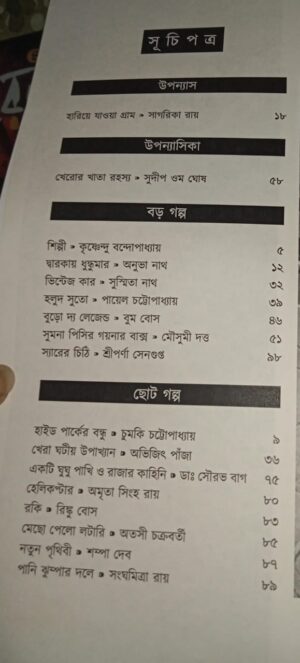 সূচিপত্র
উপন্যাস
হারিয়ে যাওয়া গ্রাম • সাগরিকা রায় ১৮
উপন্যাসিকা
খেরোর খাতা রহস্য • সুদীপ ওম ঘোষ ৫৮
বড় গল্প
শিল্পী • কৃষ্ণেন্দু বন্দোপাধ্যায় ৫
দ্বারকায় ধুন্ধুমার • অনুভা নাথ ১২
ভিন্টেজ কার • সুস্মিতা নাথ ৩২
হলুদ সুতো • পায়েল চট্টোপাধ্যায় ৩৯
বুড়ো দ্য লেজেন্ড • বুম বোস ৪৬
সুমনা পিসির গয়নার বাক্স • মৌসুমী দত্ত ৫১
স্যারের চিঠি • শ্রীপর্ণা সেনগুপ্ত ৯৮
ছোট গল্প
হাইড পার্কের বন্ধু • চুমকি চট্টোপাধ্যায় ৯
খেরা ঘটীয় উপাখ্যান • অভিজিৎ পাঁজা ৩৬
একটি ঘুঘু পাখি ও রাজার কাহিনি • ডাঃ সৌরভ বাগ ৭৫
হেলিকপ্টার • অমৃতা সিংহ রায় ৮০
রকি • রিঙ্কু বোস ৮৩
মেছো পেলো লটারি • অতসী চক্রবর্তী ৮৫
নতুন পৃথিবী • শম্পা দেব ৮৭
পানি ঝুম্পার দলে • সংঘমিত্রা রায় ৮৯